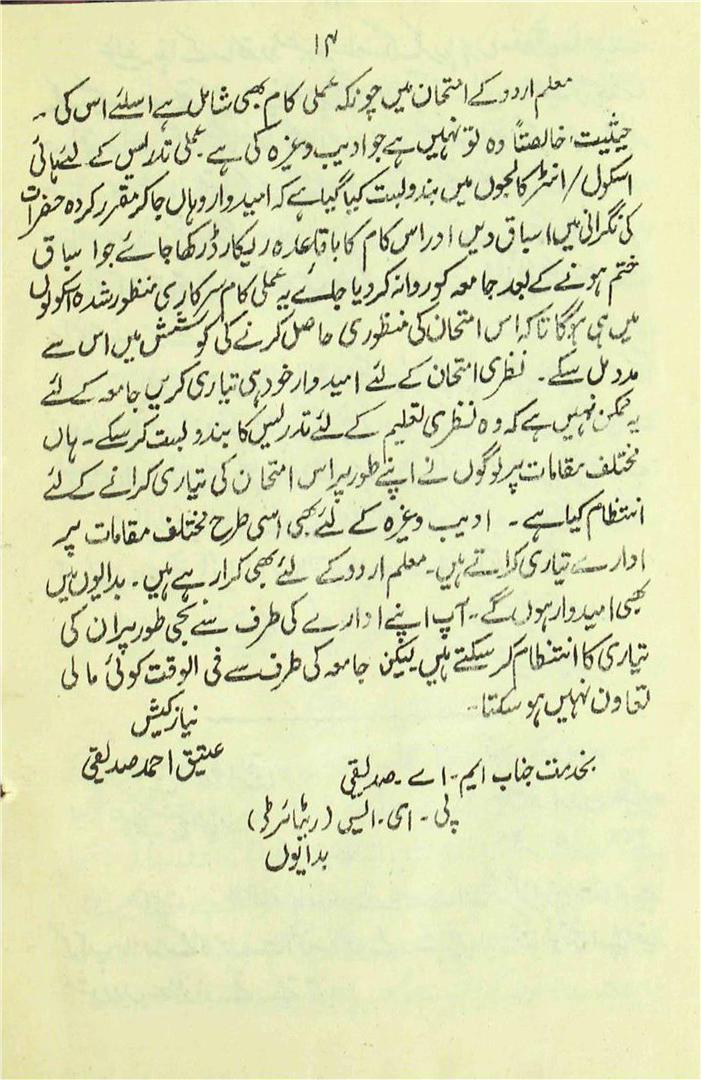 ۱۴
معلم اردو کے امتحان میں چونکہ عملی کام بھی شامل ہے اسلئے اس کی ۔
حیثیت خالصتاً وہ تو نہیں ہے جو ادیب وغیرہ کی ہے ۔ عملی تدریس کے لئے ہائی
اسکول/انٹر کالجوں میں بندوبست کیا گیا ہے کہ امیدوار وہاں جا کر مقرر کردہ حضرات
کی نگرانی میں اسباق دیں اور اس کام کا باقاعدہ ریکارڈ رکھا جائے جو اسباق
ختم ہونے کے بعد جامعہ کو روانہ کر دیا جائے یہ عملی کام سرکاری منظور شدہ اسکولوں
میں ہی ہوگا تاکہ اس امتحان کی منظوری حاصل کرنے کی کوشش میں اس سے
مدد مل سکے ۔ نظری امتحان کے لئے امیدوار خود ہی تیاری کریں جامعہ کے لئے
یہ ممکن نہیں ہے کہ وہ نظری تعلیم کے لئے تدریس کا بندوبست کر سکے ۔ ہاں
مختلف مقامات پر لوگوں نے اپنے طور پر اس امتحان کی تیاری کرانے کے لئے
انتظام کیا ہے ۔ ادیب وغیرہ کے لئے بھی اسی طرح مختلف مقامات پر
ادارے تیاری کراتے ہیں ۔ معلم اردو کے لئے بھی کرا رہے ہیں ۔ بدایوں میں
بھی امیدوار ہوں گے ۔ آپ اپنے ادارے کی طرف سے نجی طور پر ان کی
تیاری کا انتظام کر سکتے ہیں لیکن جامعہ کی طرف سے فی الوقت کوئی مالی
تعاون نہیں ہو سکتا ۔
نیاز کیش
عتیق احمد صدیقی
بخدمت جناب ایم ۔ اے ۔ صدیقی
پی ۔ ای ۔ ایس (ریٹائرڈ)
بدایوں